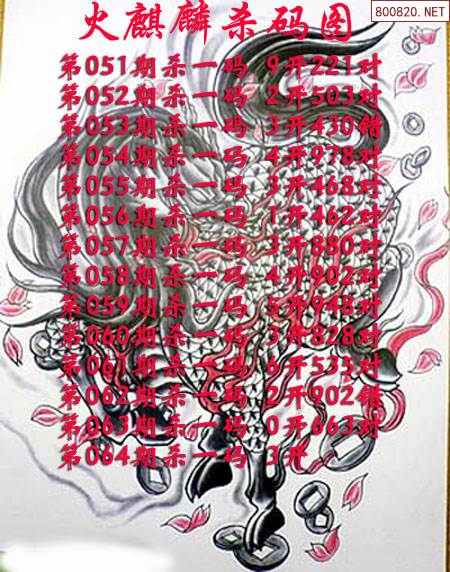 火麒麟杀码图
800820.NET
第051期杀一码 9开221对
第052期杀一码 2开503对
第053期杀一码 3开430错
第054期杀一码 4开978对
第055期杀一码 3开468对
第056期杀一码 1开462对
第057期杀一码 3开880对
第058期杀一码 4开902对
第059期杀一码 5开948对
第060期杀一码 3开828对
第061期杀一码 6开535对
第062期杀一码 2开902错
第063期杀一码 0开663对
第064期杀一码 3开